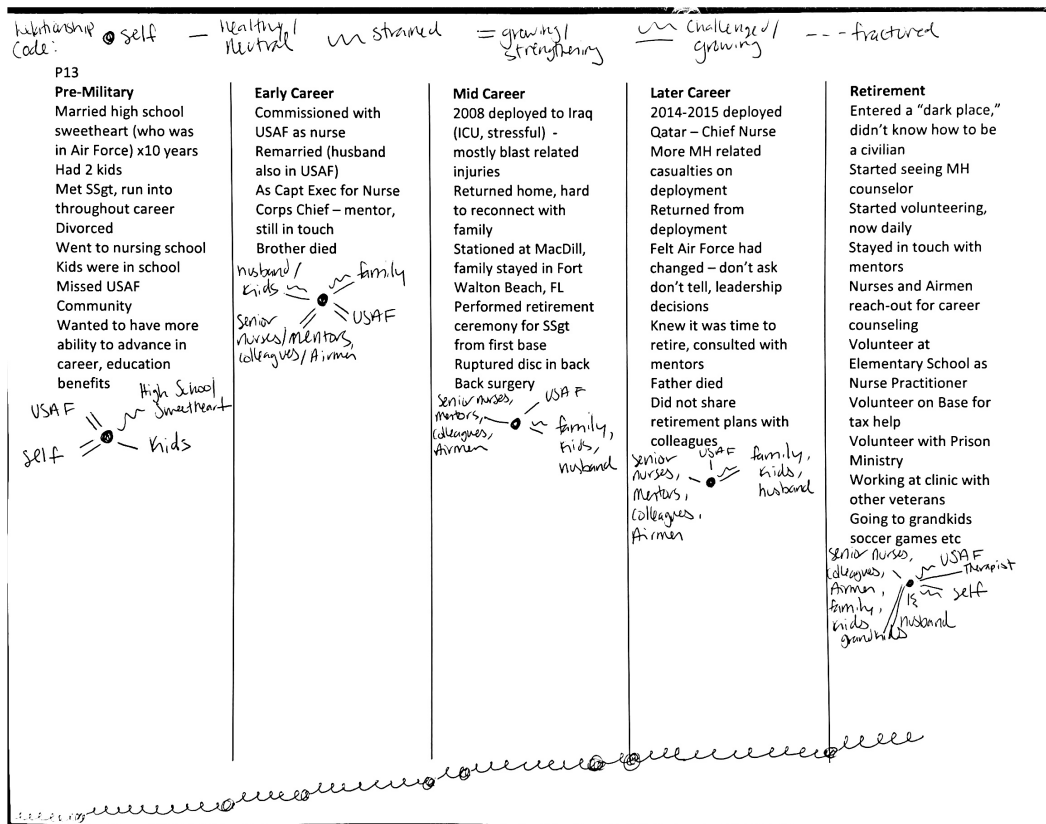 Relationship Code: self healthy/ neutral strained = growing/ strengthening challenged/ growing --- fractured
P13
Pre-Military
Married high school
sweetheart (who was
in Air Force) x10 years
Had 2 kids
Met SSgt, run into
throughout career
Divorced
Went to nursing school
Kids were in school
Missed USAF
Community
Wanted to have more
ability to advance in
career, education
benefits
High School
Sweetheart
USAF
self
Kids
Early Career
Commissioned with
USAF as nurse
Remarried (husband
also in USAF)
As Capt Exec for Nurse
Corps Chief – mentor,
still in touch
Brother died
husband/
kids
family
USAF
Senior
nurses/mentors,
colleagues/Airmen
Mid Career
2008 deployed to Iraq
(ICU, stressful) -
mostly blast related
injuries
Returned home, hard
to reconnect with
family
Stationed at MacDill,
family stayed in Fort
Walton Beach, FL
Performed retirement
ceremony for SSgt
from first base
Ruptured disc in back
Back surgery
Senior nurses,
mentors,
colleagues,
Airmen
USAF
family,
kids,
husband
Later Career
2014-2015 deployed
Qatar – Chief Nurse
More MH related
casualties on
deployment
Returned from
deployment
Felt Air Force had
changed – don't ask
don't tell, leadership
decisions
Knew it was time to
retire, consulted with
mentors
Father died
Did not share
retirement plans with
colleagues
senior
nurses,
mentors,
colleagues,
Airmen
USAF
family,
kids,
husband
Retirement
Entered a "dark place,"
didn't know how to be
a civilian
Started seeing MH
counselor
Started volunteering,
now daily
Stayed in touch with
mentors
Nurses and Airmen
reach-out for career
counseling
Volunteer at
Elementary School as
Nurse Practitioner
Volunteer on Base for
tax help
Volunteer with Prison
Ministry
Working at clinic with
other veterans
Going to grandkids
soccer games etc
senior nurses,
colleagues,
Airmen,
family,
kids
grandkids
USAF
Therapist
self
husband